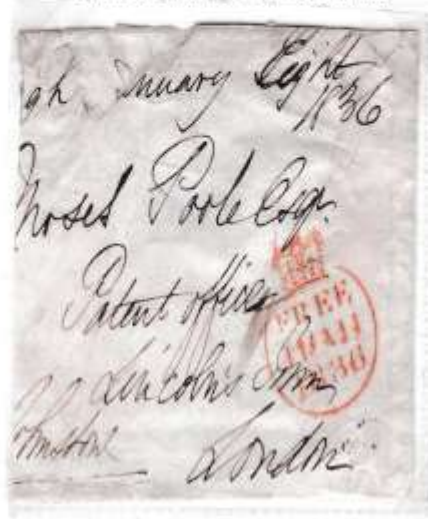 gh January Eight
1836
Moses Poole Esqr.
Patent office
Lincoln's Inn
Johnstone
London
FREE
10 JA 10
1836